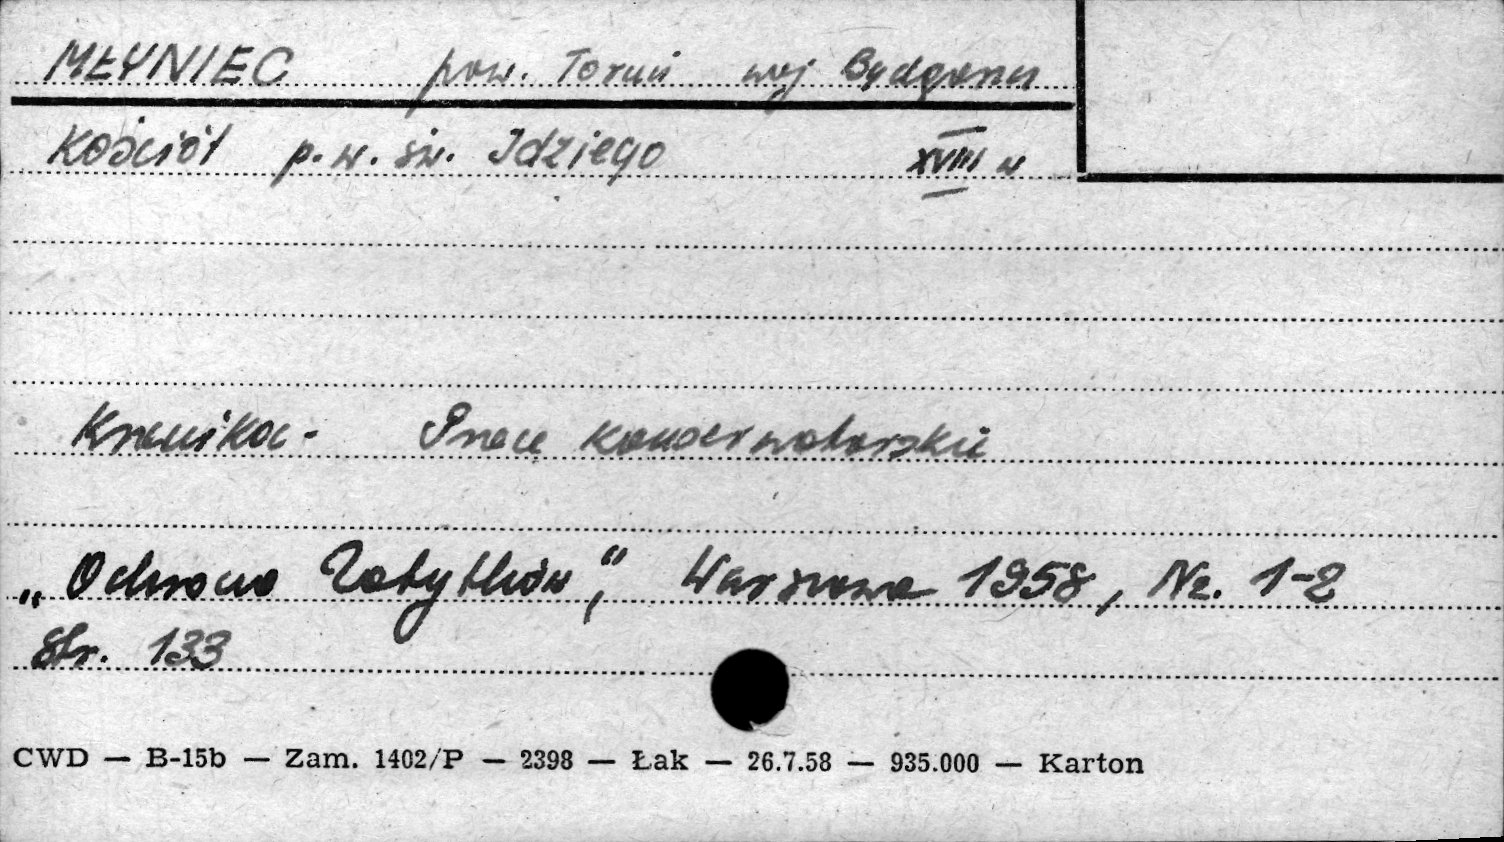 MŁYNIEC pow. Toruń woj Bydgoszcz
Kościół p.w. św. Idziego XVIII w
Kronika - Prace konserwatorskie
„Ochrona Zabytków”, Warszawa 1958, Nr. 1-2
Str. 133
CWD — B-15b — Zam. 1402/P — 2398 — Łak — 26.7.58 — 935.000 — Karton